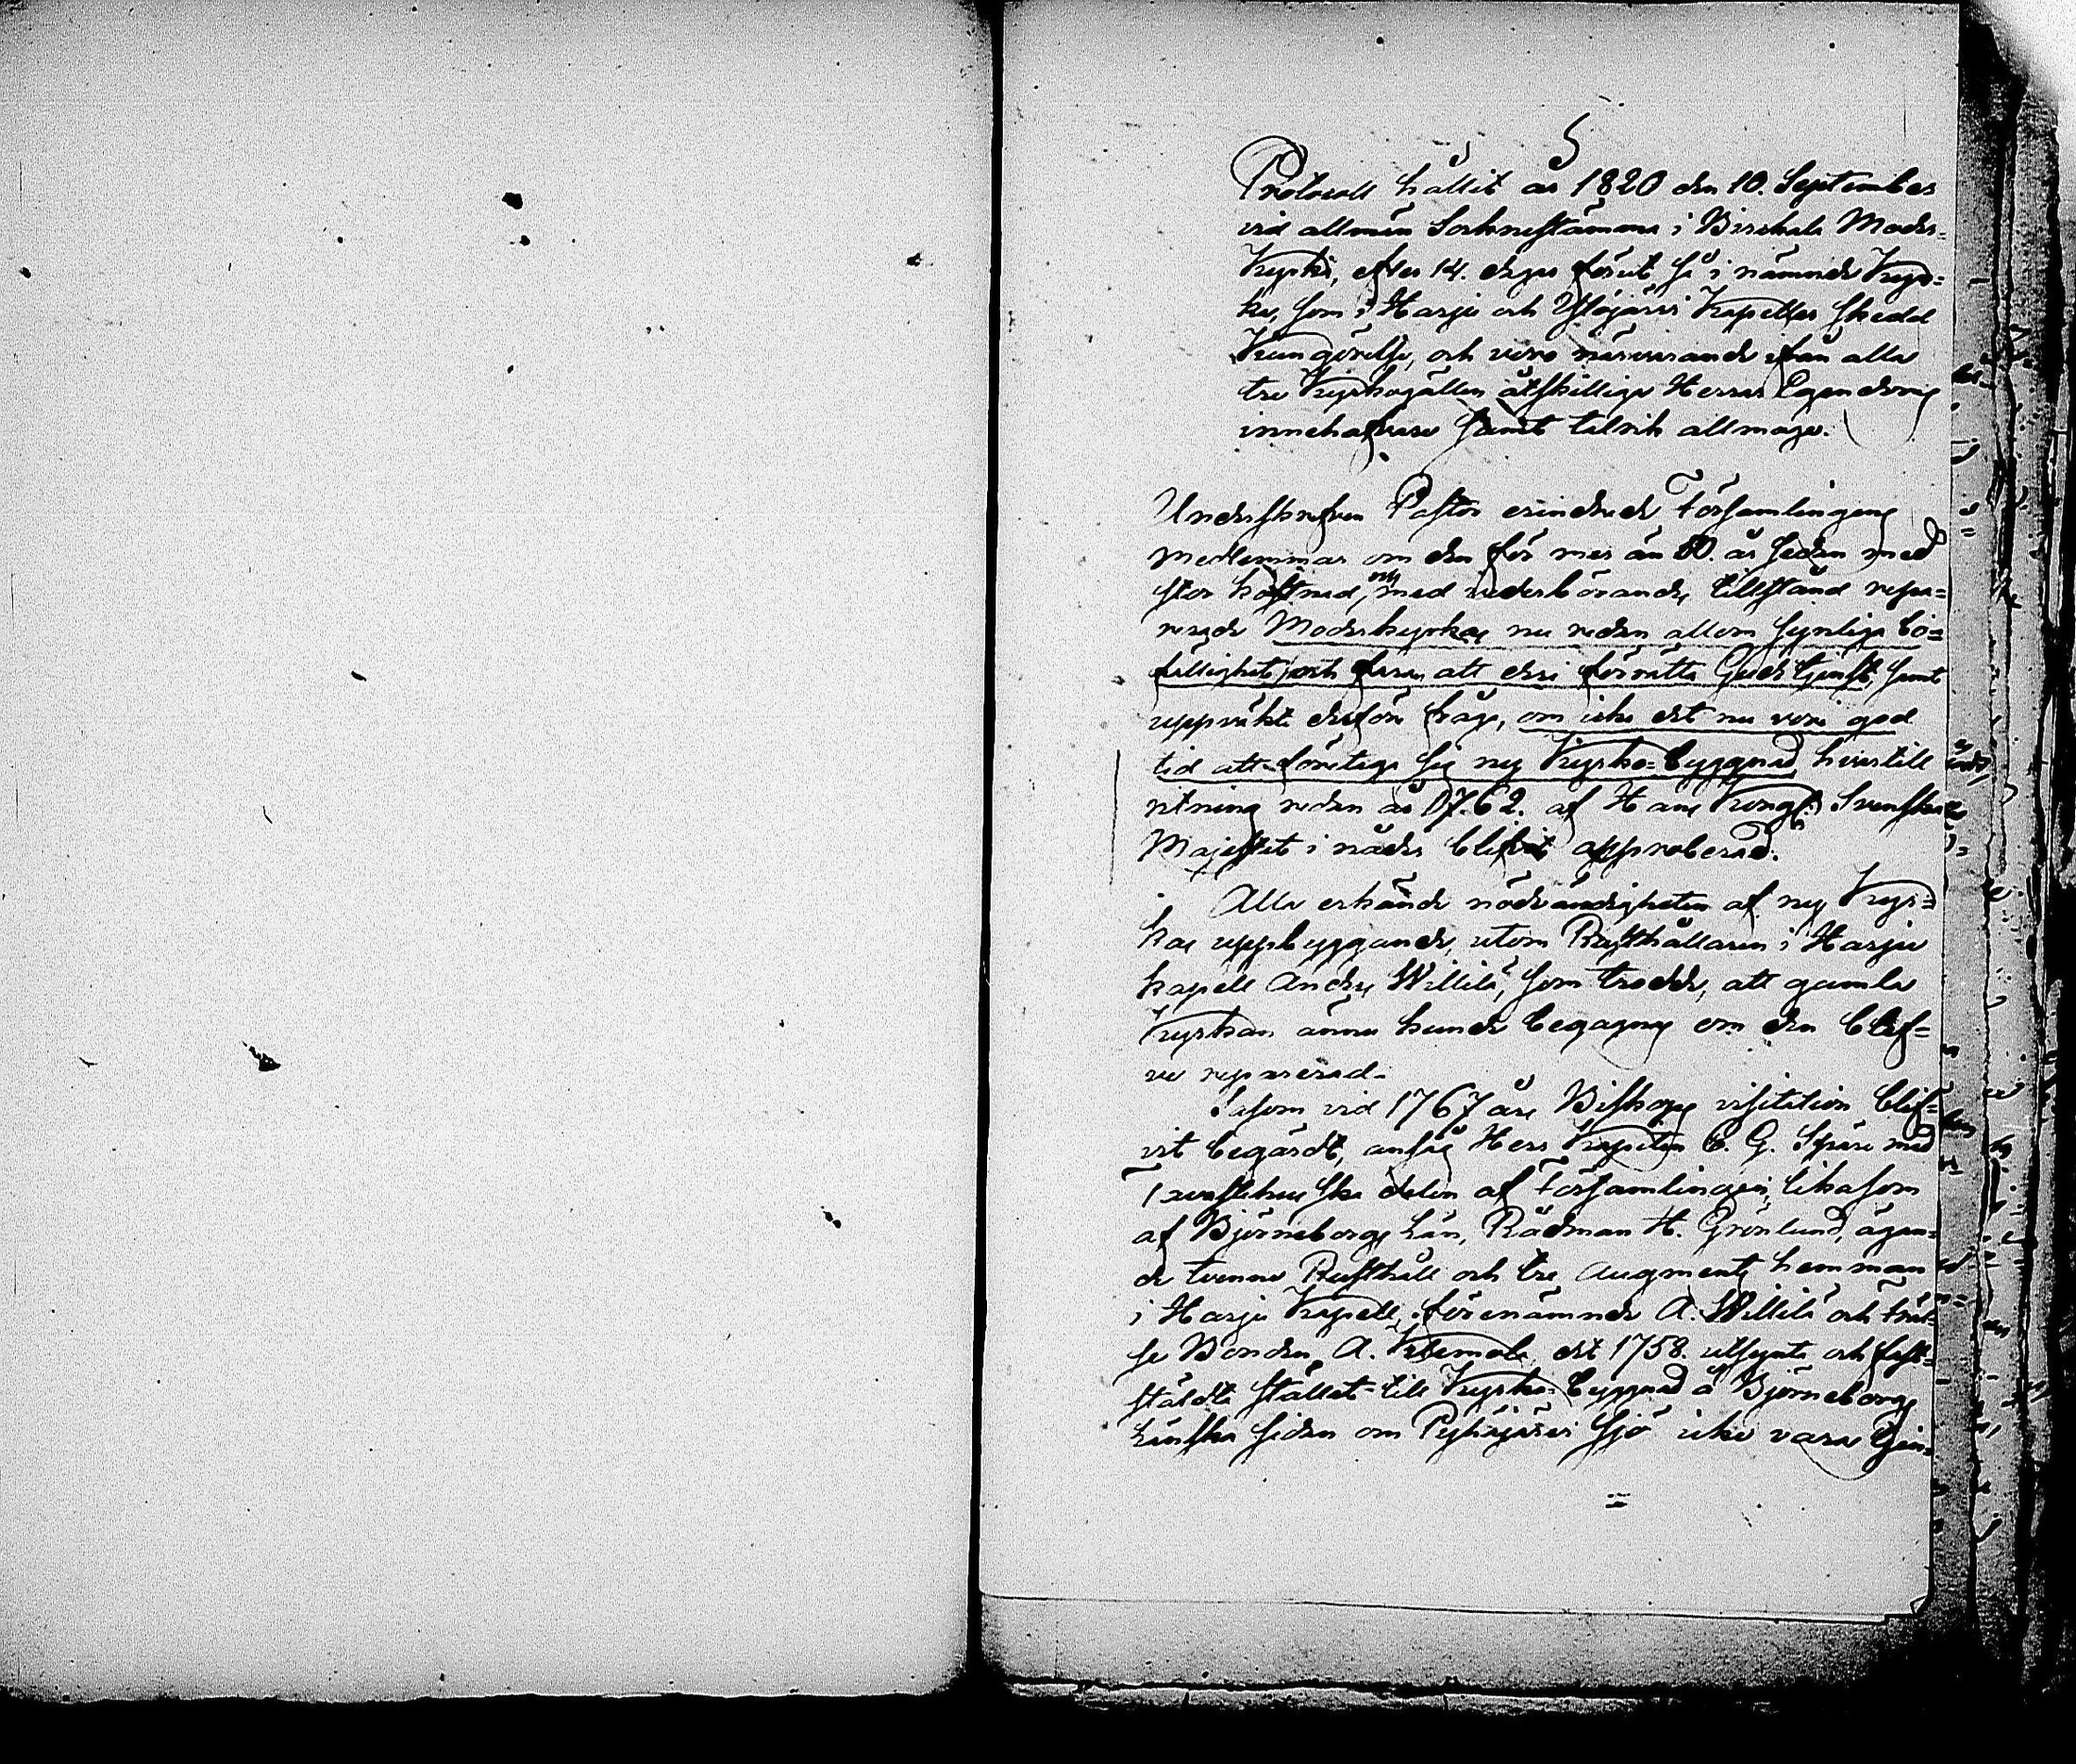 5
Protocoll hållit år 1820 den 10. September
vid allmän Sockneſtämma i Birckala Moder=
Kyrka, efter 14. dagar förut ſå i nämnde Kyr=
ka, ſom i Harju och Ylöjärvi Kapeller ſkedd
Kungörelſe, och voro närvarande ifrån alla
tre Kyrkogällen åtſkillige Herrar Egendoms
innehafvare ſamt talrik allmoge.
Underſkrefven Paſtor erindrade Förſamlingens
medlemmar om den för mer än 50. år ſedan med
ſtor koſtnad, och med vederbörandes tillſtånd repa=
rerade Moderkyrkas nu redan allom ſynliga bo=
fällighet, och faran att deri förrätta Gudstjenſt, ſamt
uppväkte derföre fråga, om icke det nu vore god
tid att företaga ſig ny Kyrko=byggnad, hvartill
ritning redan år 1762. af Hans Kongl: Svenſka
Majeſtet i nåder blifvit approberad.
Alla erkände nödvändigheten af ny Kyr=
kas uppbyggande, utom Ruſthållaren i Harju
kapell Anders Willilä, ſom trodde, att gamla
Kyrkan ännu kunde begagnas om den blef=
ve reparerad.
Såſom vid 1767 års Biſkops viſitation blif=
vit begärdt, anſåg Herr Kapiten C. G. Spåre med
Tavaſtehuſſka delen af Förſamlingen, likaſom
af Björneborgs Län, Rådman H. Grönlund, ägan=
de tvenne Ruſthåll och tre Augments hemman
i Harju Kapell, förenämnde A. Willilä och Fräl=
ſe Bonden A. det 1758. utſynta och faſt=
ſtäldta ſtället till Kyrko=byggnad å Björneborgs
Länſka ſidan om Pyhäjärvi ſjö icke vara tjen=
=